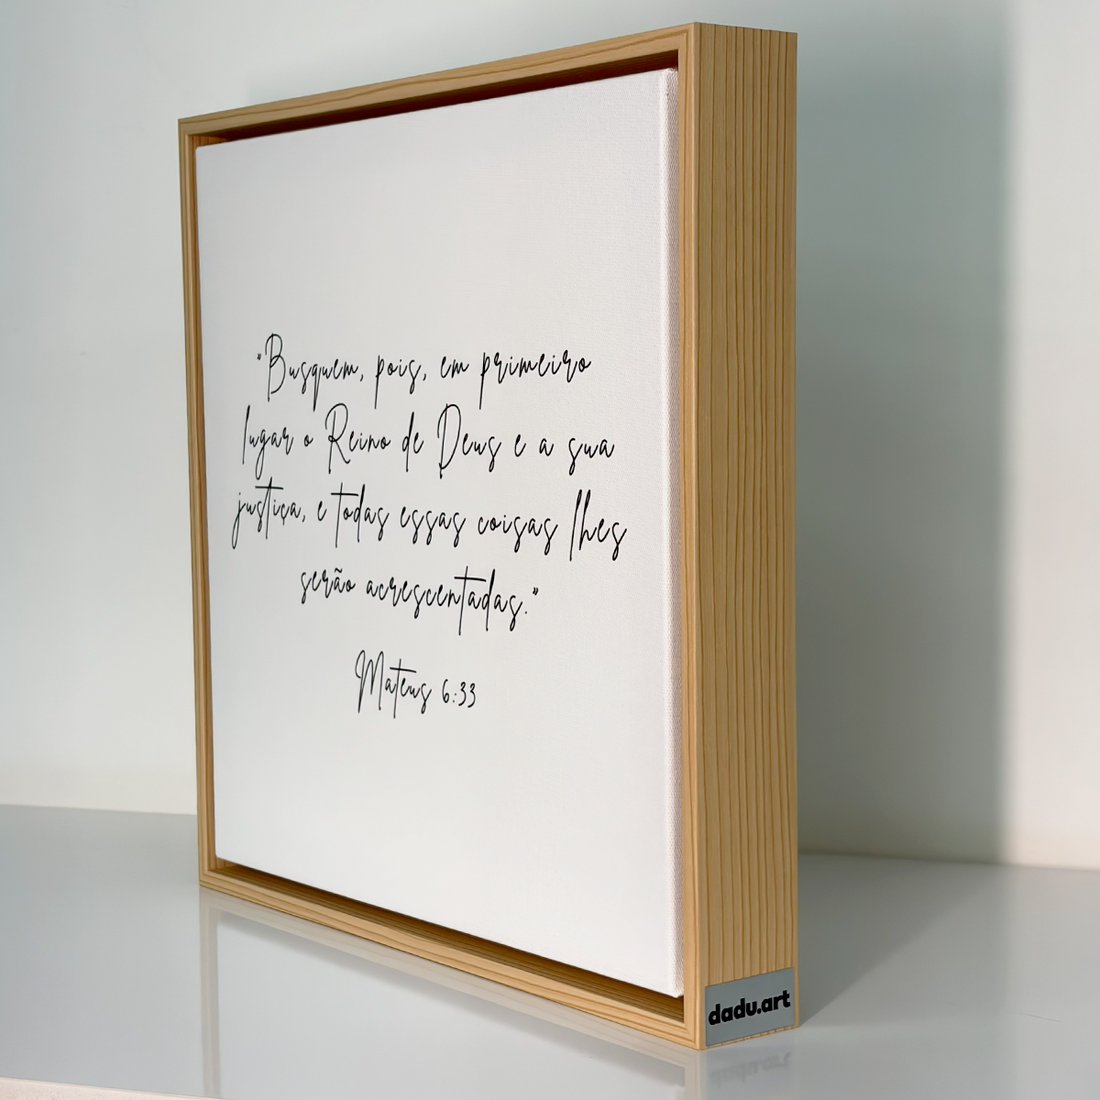 "Busquem, pois, em primeiro
lugar o Reino de Deus e a sua
justiça, e todas essas coisas lhes
serão acrescentadas."
Mateus 6:33
dadu.art